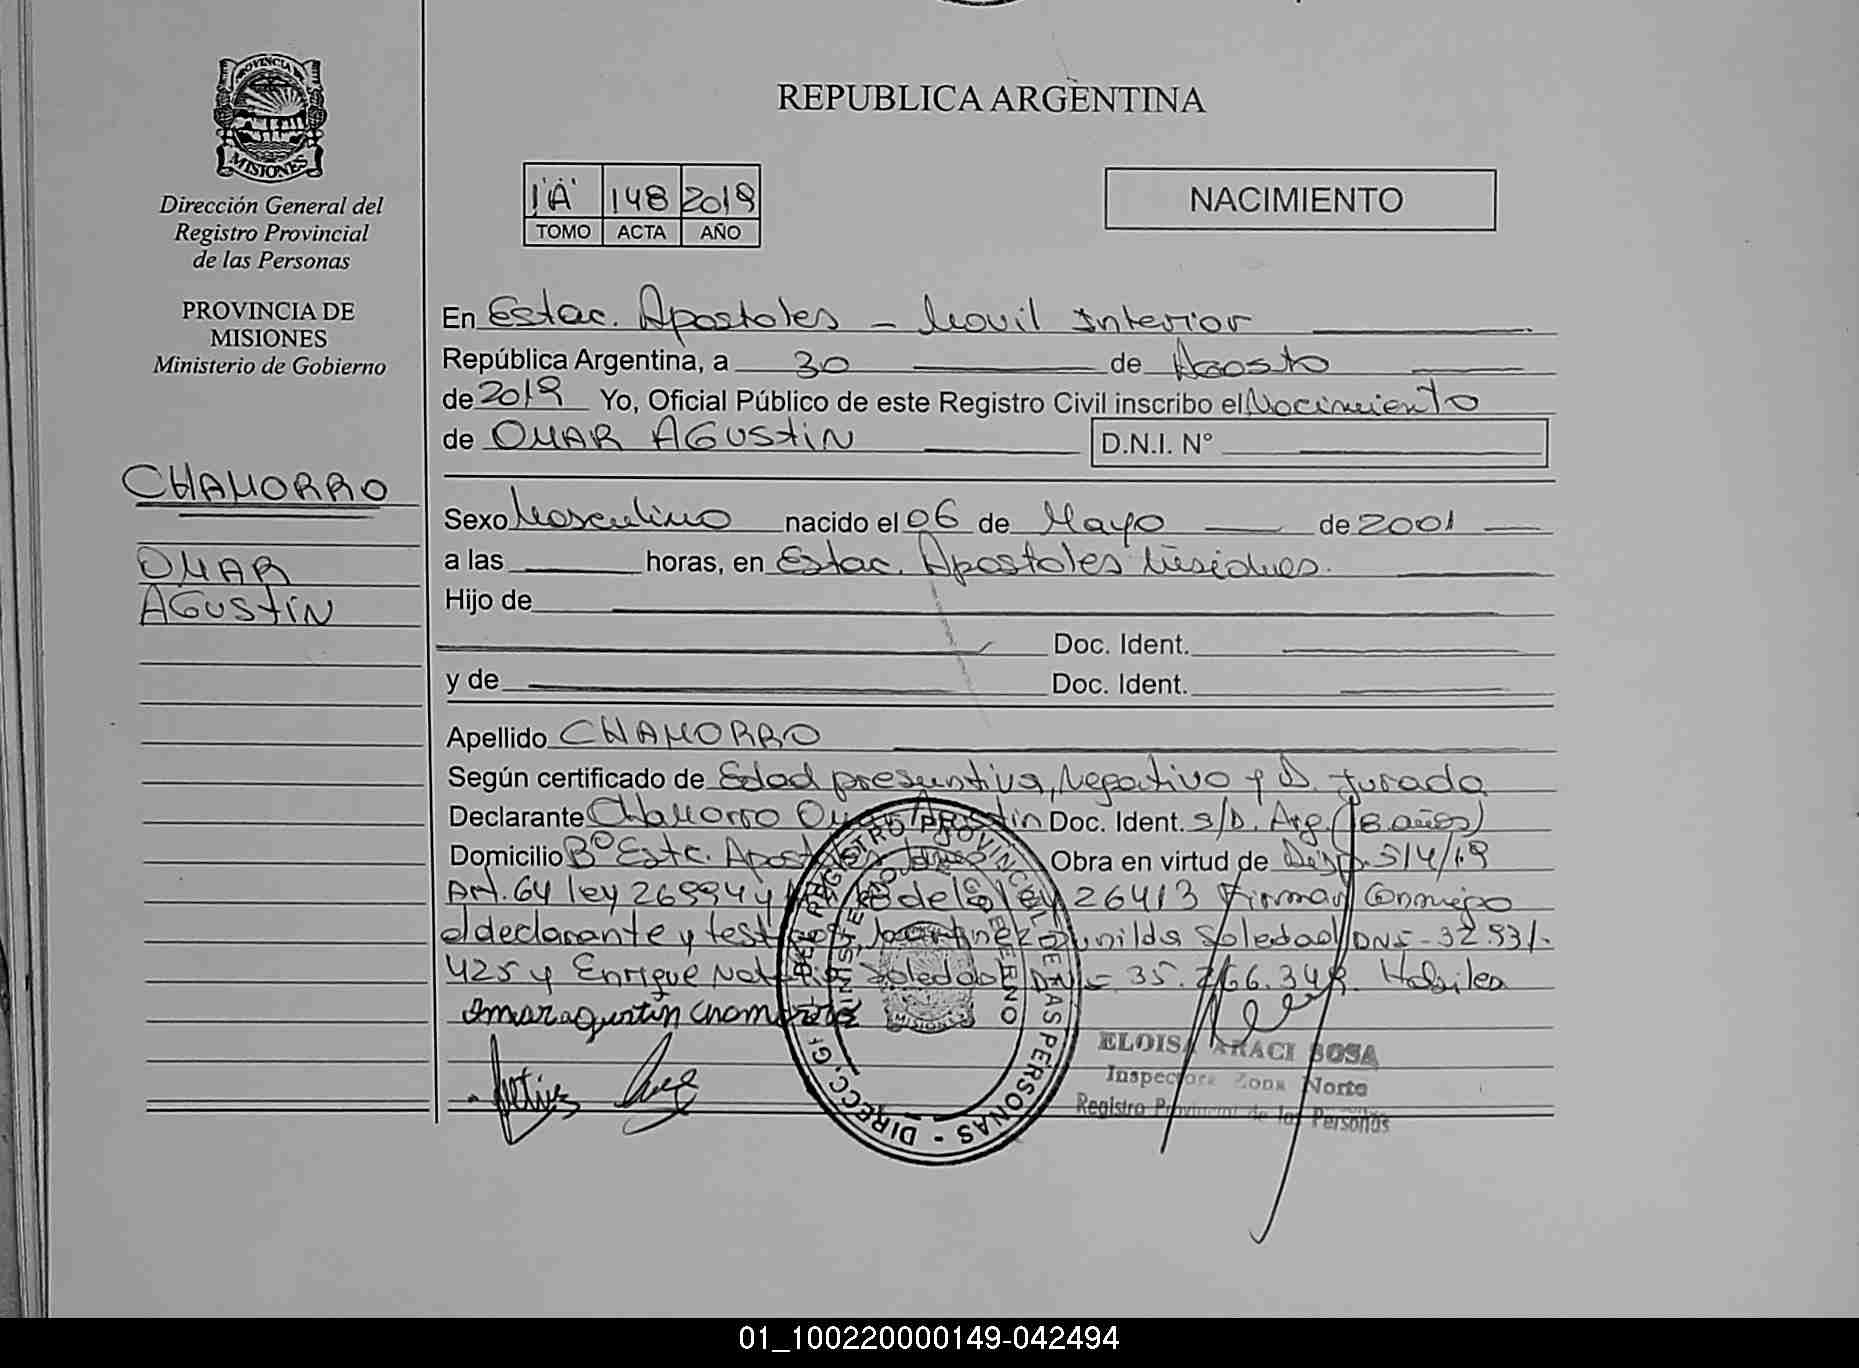 REPUBLICA ARGENTINA
PROVINCIA DE
MISIONES
Dirección General del
Registro Provincial
de las Personas
PROVINCIA DE
MISIONES
Ministerio de Gobierno
CHAMORRO
OMAR
AGUSTIN
1"A" 148 2019
TOMO ACTA AÑO
NACIMIENTO
En Estac. Apostoles - Movil Interior
República Argentina, a 30 de Agosto
de 2019 Yo, Oficial Público de este Registro Civil inscribo el Nacimiento
de OMAR AGUSTIN D.N.I. N°
Sexo Masculino nacido el 06 de Mayo de 2001
a las horas, en Estac. Apostoles Misiones.
Hijo de
Doc. Ident.
y de Doc. Ident.
Apellido CHAMORRO
Según certificado de Edad presuntiva, Negativo y D. Jurada
Declarante Chamorro Omar Agustin Doc. Ident. S/D. Arg. (18 años)
Domicilio B° Estc. Apostoles Obra en virtud de Disp. 514/19
Art. 64 ley 26994 y de la ley 26413 Firman Conmigo
el declarante y testigos, Martinez Zunilda Soledad DNI - 32.931.
425 y Enrique Soledad DNI - 35. Habiles
Omar agustin Chamorro
DIRECC. GRAL. DEL REGISTRO PROVINCIAL DE LAS PERSONAS
MINISTERIO DE GOBIERNO
MISIONES
ELOISA ARACI SOSA
Inspectora Zona Norte
Registro Provincial de las Personas
01_100220000149-042494